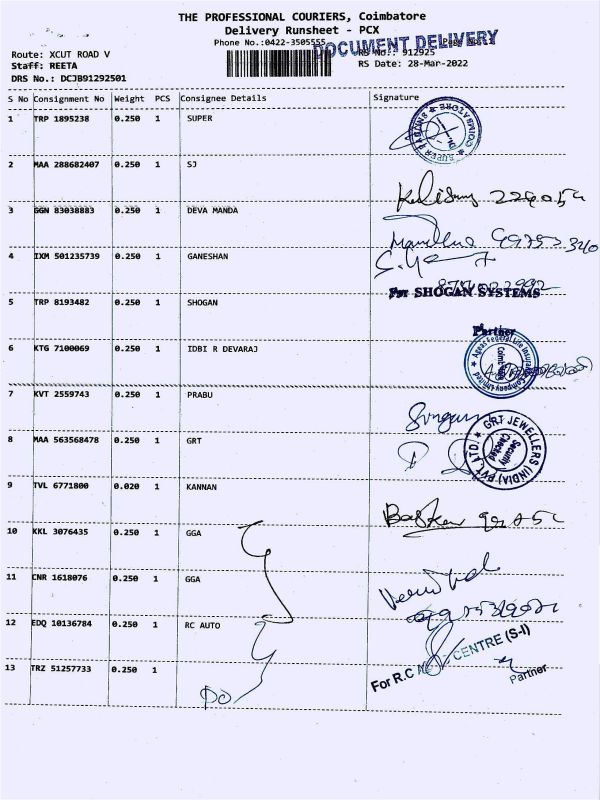 THE PROFESSIONAL COURIERS, Coimbatore
Delivery Runsheet - PCX
Phone No.:0422-3505555
DOCUMENT DELIVERY
Route: XCUT ROAD V
RS No.: 912925
Staff: REETA
RS Date: 28-Mar-2022
DRS No.: DCJB91292501
S No Consignment No Weight PCS Consignee Details Signature
1 TRP 1895238 0.250 1 SUPER
COIMBATORE
2 MAA 288682407 0.250 1 SJ
3 GGN 83038883 0.250 1 DEVA MANDA
4 IXM 501235739 0.250 1 GANESHAN
For SHOGAN SYSTEMS
5 TRP 8193482 0.250 1 SHOGAN
Partner
6 KTG 7100069 0.250 1 IDBI R DEVARAJ
Ageas Federal Life Insurance Company Limited
7 KVT 2559743 0.250 1 PRABU
8 MAA 563568478 0.250 1 GRT
GRT JEWELLERS (INDIA) PVT. LTD.
Security Checked
9 TVL 6771800 0.020 1 KANNAN
10 KKL 3076435 0.250 1 GGA
11 CNR 1618076 0.250 1 GGA
12 EDQ 10136784 0.250 1 RC AUTO
For R.C CENTRE (S-I)
Partner
13 TRZ 51257733 0.250 1